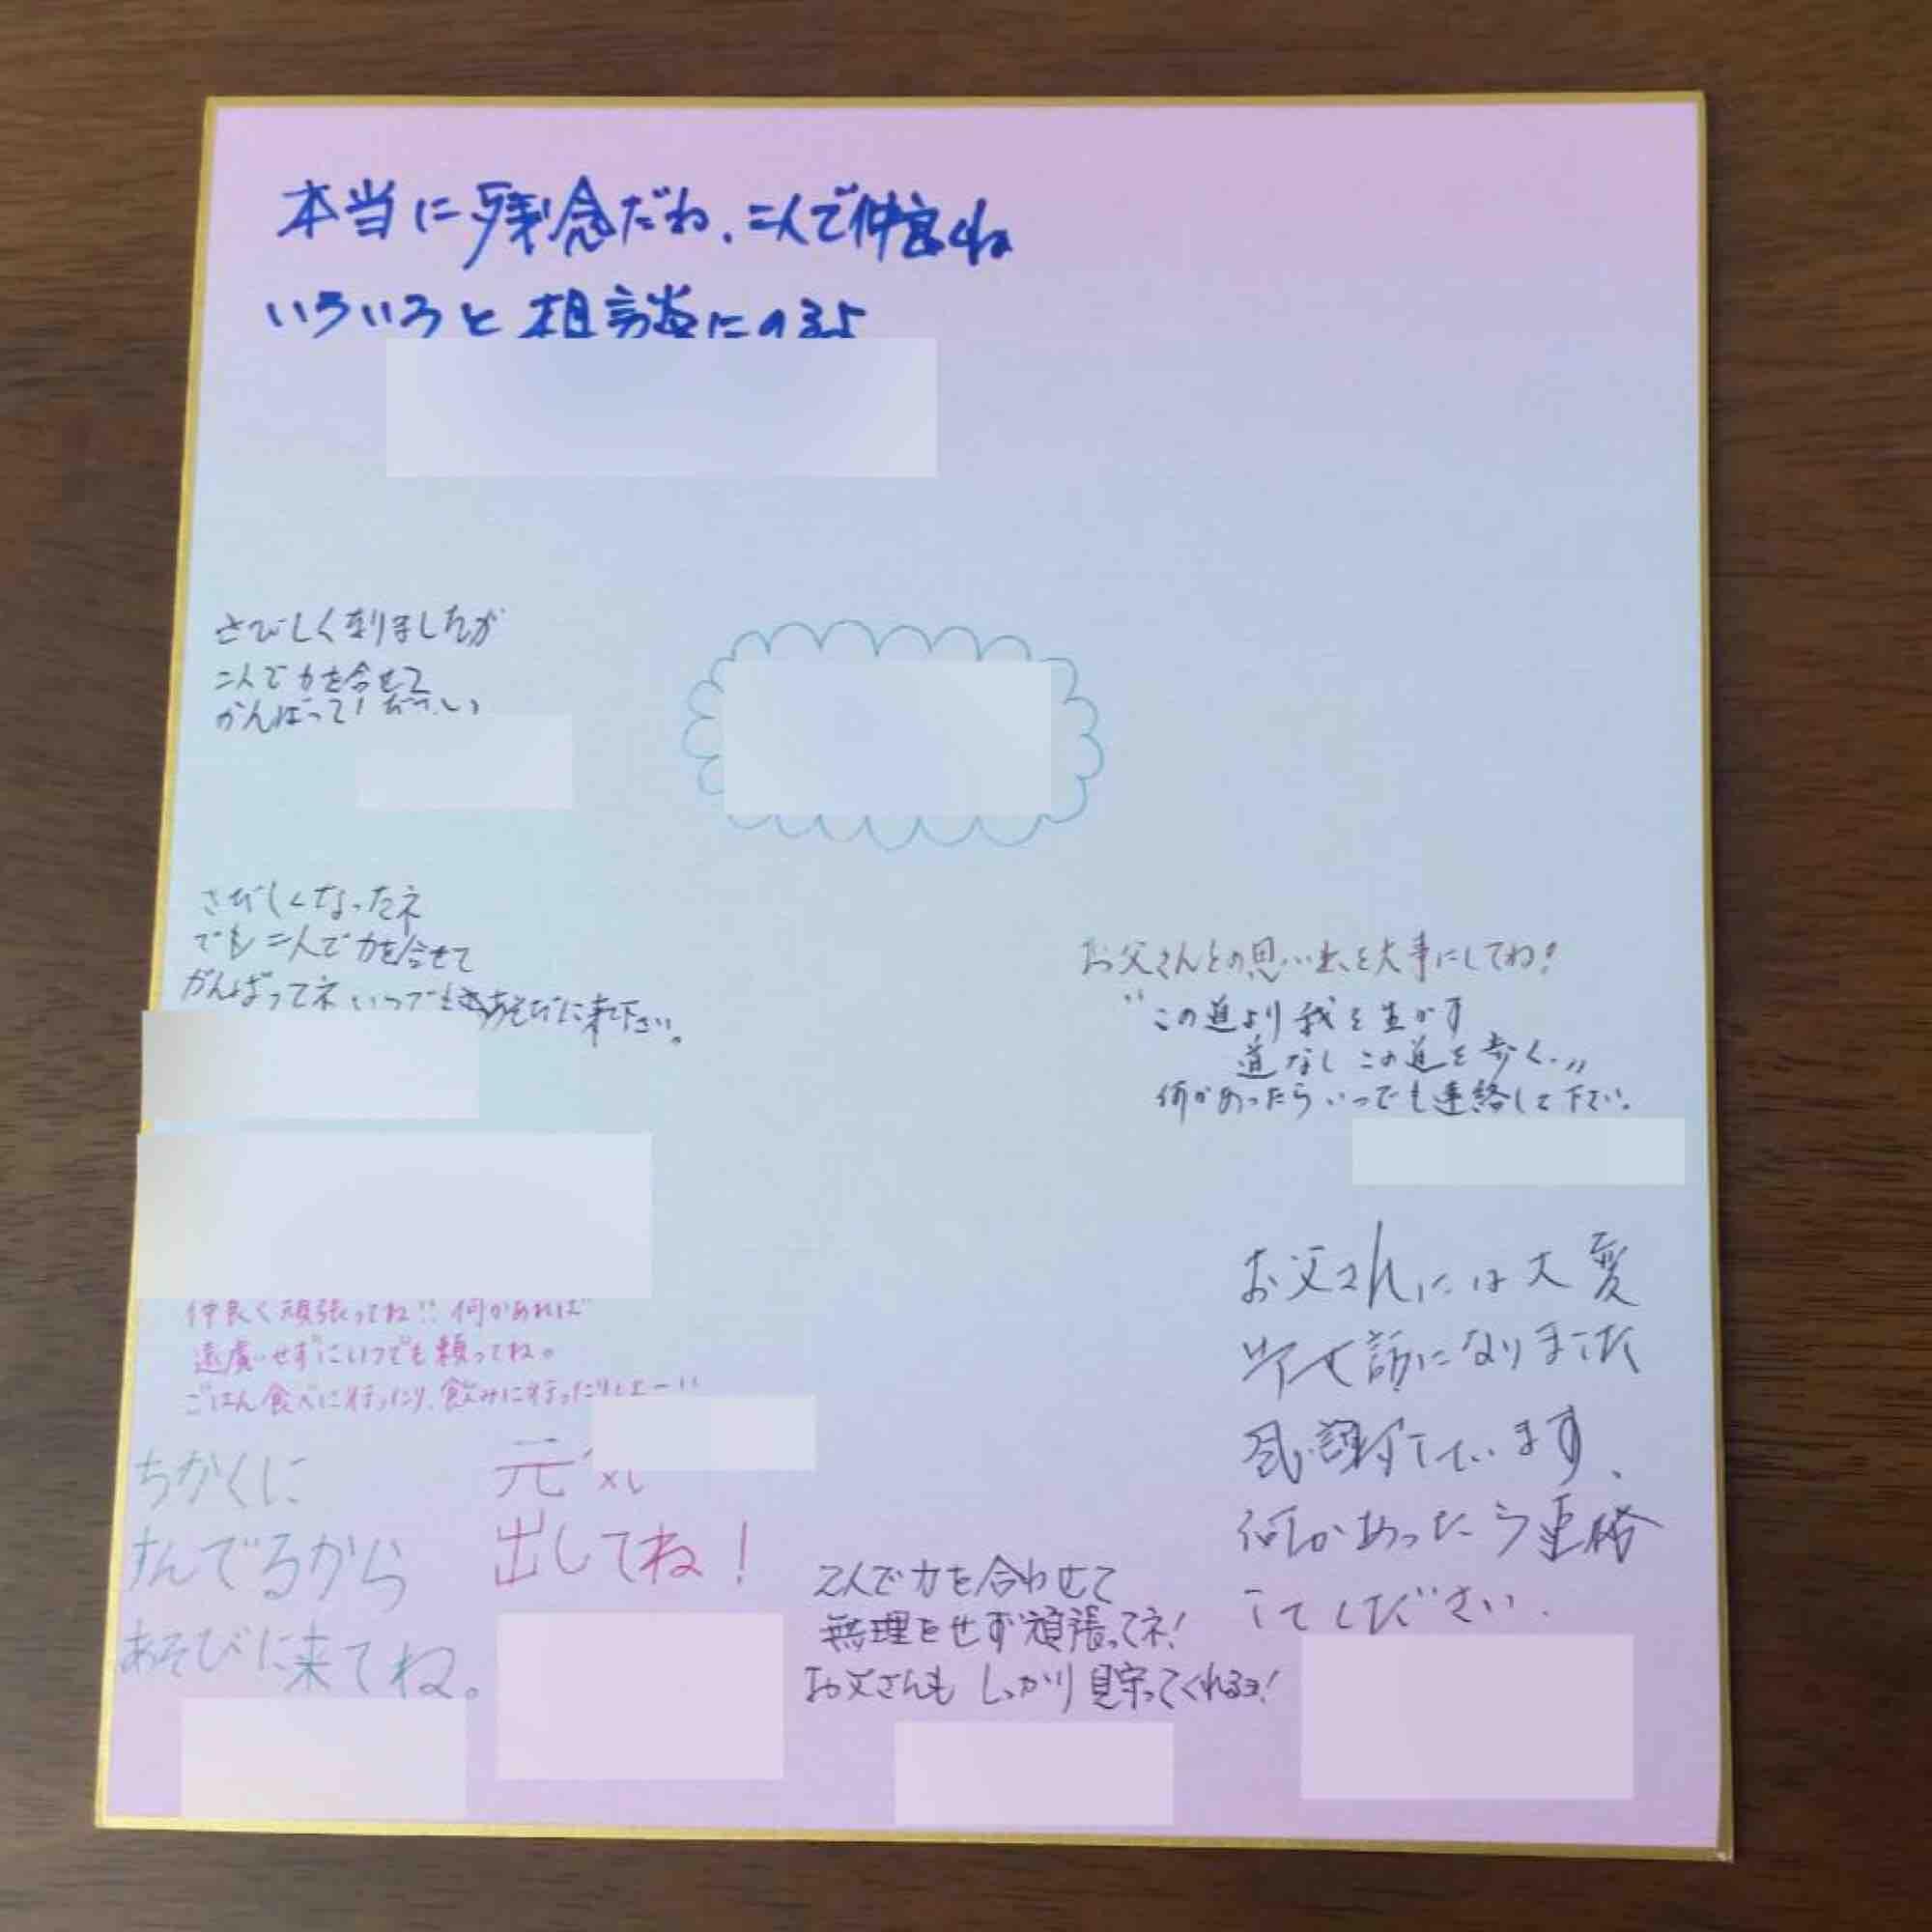 本当に残念だね、二人で仲良くね
いろいろと相談にのるよ
さびしく なりましたが
二人で力を合せて
がんばってください
さびしくなったネ
でも二人で力を合せて
がんばってネ いつでもあそびに来て下さい。
お父さんとの思い出を大事にしてね!
"この道より我を生かす
道なし この道を歩く.〃
何かあったらいつでも連絡して下さい。
仲良く頑張ってね!! 何かあれば
遠慮せずにいつでも頼ってね。
ごはん食べに行ったり、飲みに行ったりしよー!!
ちかくに
すんでるから
あそびに来てね。
元気
出してね!
2人で力を合わせて
無理をせず頑張ってネ!
お父さんも しっかり見守ってくれるヨ!
お父さんには大変
お世話になりました
感謝しています、
何かあったら連絡
してください.